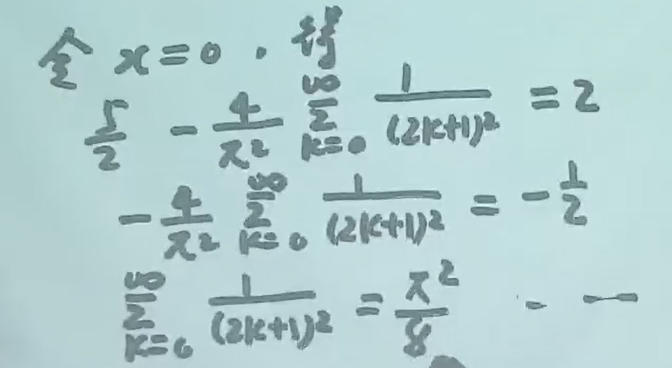 令 x=0，得
5/2 - 4/π² ∑_{k=0}^{∞} 1/(2k+1)² = 2
- 4/π² ∑_{k=0}^{∞} 1/(2k+1)² = - 1/2
∑_{k=0}^{∞} 1/(2k+1)² = π²/8